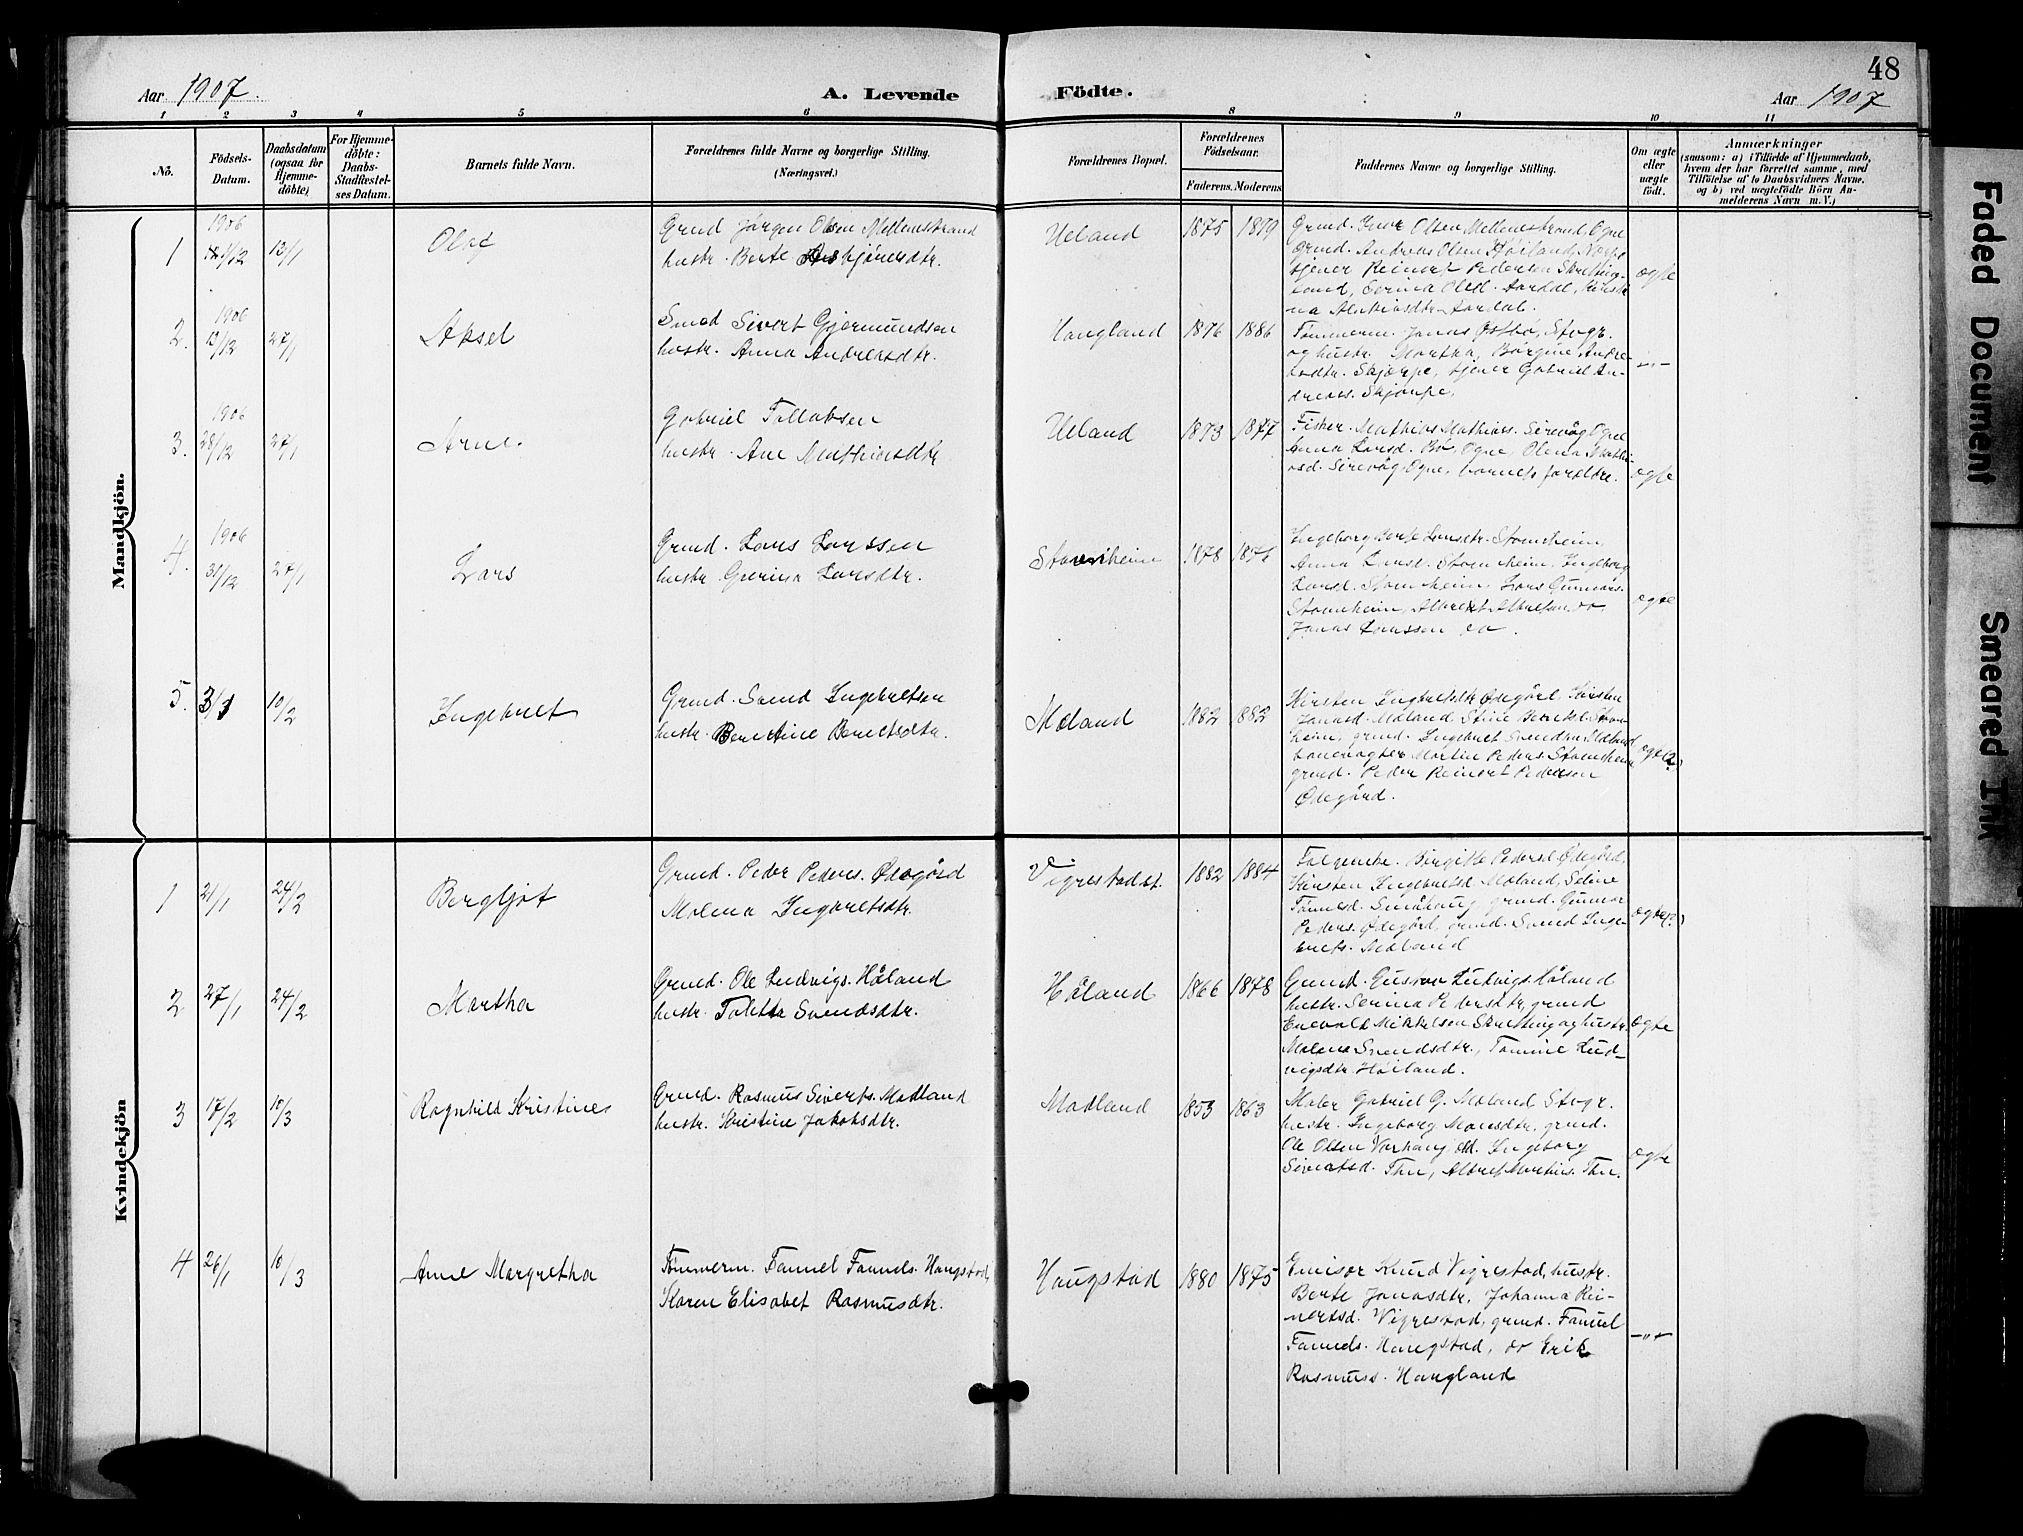 48
Aar 1907. A. Levende Födte. Aar 1907
1 2 3 4 5 6 8 9 10 11
No. Födsels-Datum. Daabsdatum (ogsaa for Hjemme-döbte) For Hjemme-döbte: Daabs-Stadfæstel-ses Datum. Barnets fulde Navn. Forældrenes fulde Navne og borgerlige Stilling. (Næringsvei.) Forældrenes Bopæl. Forældrenes Födselsaar. Faderens. Moderens Faddernes Navne og borgerlige Stilling. Om ægte eller uægte födt. Anmærkninger (saasom: a) i Tilfælde af Hjemmedaab, hvem der har forrettet samme, med Tilföielse af to Daabsvidners Navne, og b) ved uægtefödte Börn An-melderens Navn m.V.)
Mandkjön.
1 1906 /12 13/1 Olaf
Grmd Jørgen Olsen Mellemstrand
hustr. Berte Asbjørnsdtr.
Ueland 1875 1879
Grmd. Ivar Olsen Mellemstrand, Ogne
grmd. Andreas Olsen Høiland, Nærbø
tjener Reinert Pedersen
land, Serina Olsd. Aardal,
na Aardal.
ægte
2. 1906 13/12 27/1 Aksel
Smed Sivert Gjermundsen
hustr. Anna Andreasdtr.
Haugland 1876 1886
Tømmerm. Jonas Østbø, Stvgr.
og hustr. Martha, Børgine Andre-
asdtr. Skjærpe, tjener Gabriel An-
dreas. Skjærpe.
-"-
3. 1906 28/12 27/1 Arne.
Gabriel Tollaksen
hustr. Ane Mathiasdtr
Ueland 1873 1877
Fisker. Mathias Mathias. Sirevåg Ogne
Anna Larsd. Bø Ogne, Olena Mathi-
asd. Sirevåg Ogne, barnets foreldre.
ægte
4. 1906 31/12 27/1 Lars
Grmd. Lars Larssen
hustr. Gurina Larsdtr.
Stavnheim 1878
Ingeborg Berte Larsdtr. Stavnheim
Anna Larsd. Stavnheim, Ingeborg
Larsd. Stavnheim, Lars Gunnars.
Stavnheim, Albret Albretsen do,
Jonas Larssen do.
ægte
5. 3/1 10/2 Ingebret
Grmd. Svend Ingebretsen
hustr. Berentine Berentsdtr.
Moland 1882 1882
Kirsten Ingebretsdtr Ødegård, Kirsten
Moland, Stine Berntsd. Stavn-
heim, grmd. Ingebret Svendsn. Moland
banevagter Martin Peders. Stavnheim
grmd. Peder Reinert Pedersen
Ødegård.
ægte (2)
Kvindekjön
1 21/1 24/2 Bergljot
Grmd. Peder Peders. Ødegård
Molena Ingebretsdtr.
Vigrestadst. 1882 1884
Birgitte Pedersd. Ødegård,
Kirsten Ingebretsd. Moland, Seline
Småhaug, grmd. Gunnar
Peders. Ødegård, grmd. Svend Inge-
brets. Moland
ægte
2 27/1 24/2 Martha
Grmd. Ole Ludvigs. Håland
hustr. Talette Svendsdtr.
Håland 1866 1878
Grmd. Gustav Ludvigs. Håland
hustr. Serina Pedersdtr, grmd
Enevald Mikkelsen Skretting og hustr.
Malena Svendsdtr., Tomine Lud-
vigsdtr Høiland.
ægte
3 17/2 10/3 Ragnhild Kristine
Grmd. Rasmus Siverts. Madland
hustr. Kristine Jakobsdtr.
Madland 1853 1863
Maler Gabriel G. Moland Stvgr.
hustr. Ingeborg Monsdtr. grmd.
Ole Olsen Varhaug, Ingeborg
Sivertsd. Thu, Thu.
ægte
4 26/1 10/3 Anne Margretha
Tømmerm. Tønnes. Haugstad,
Karen Elisabet Rasmusdtr.
Haugstad 1880 1875
Emisær Knud Vigrestad, hustr.
Berte Jonasdtr, Johanna Rei-
nertsd. Vigrestad, grmd.
Haugstad, do Erik
Rasmuss. Haugland
-"-
Faded Document
Smeared Ink